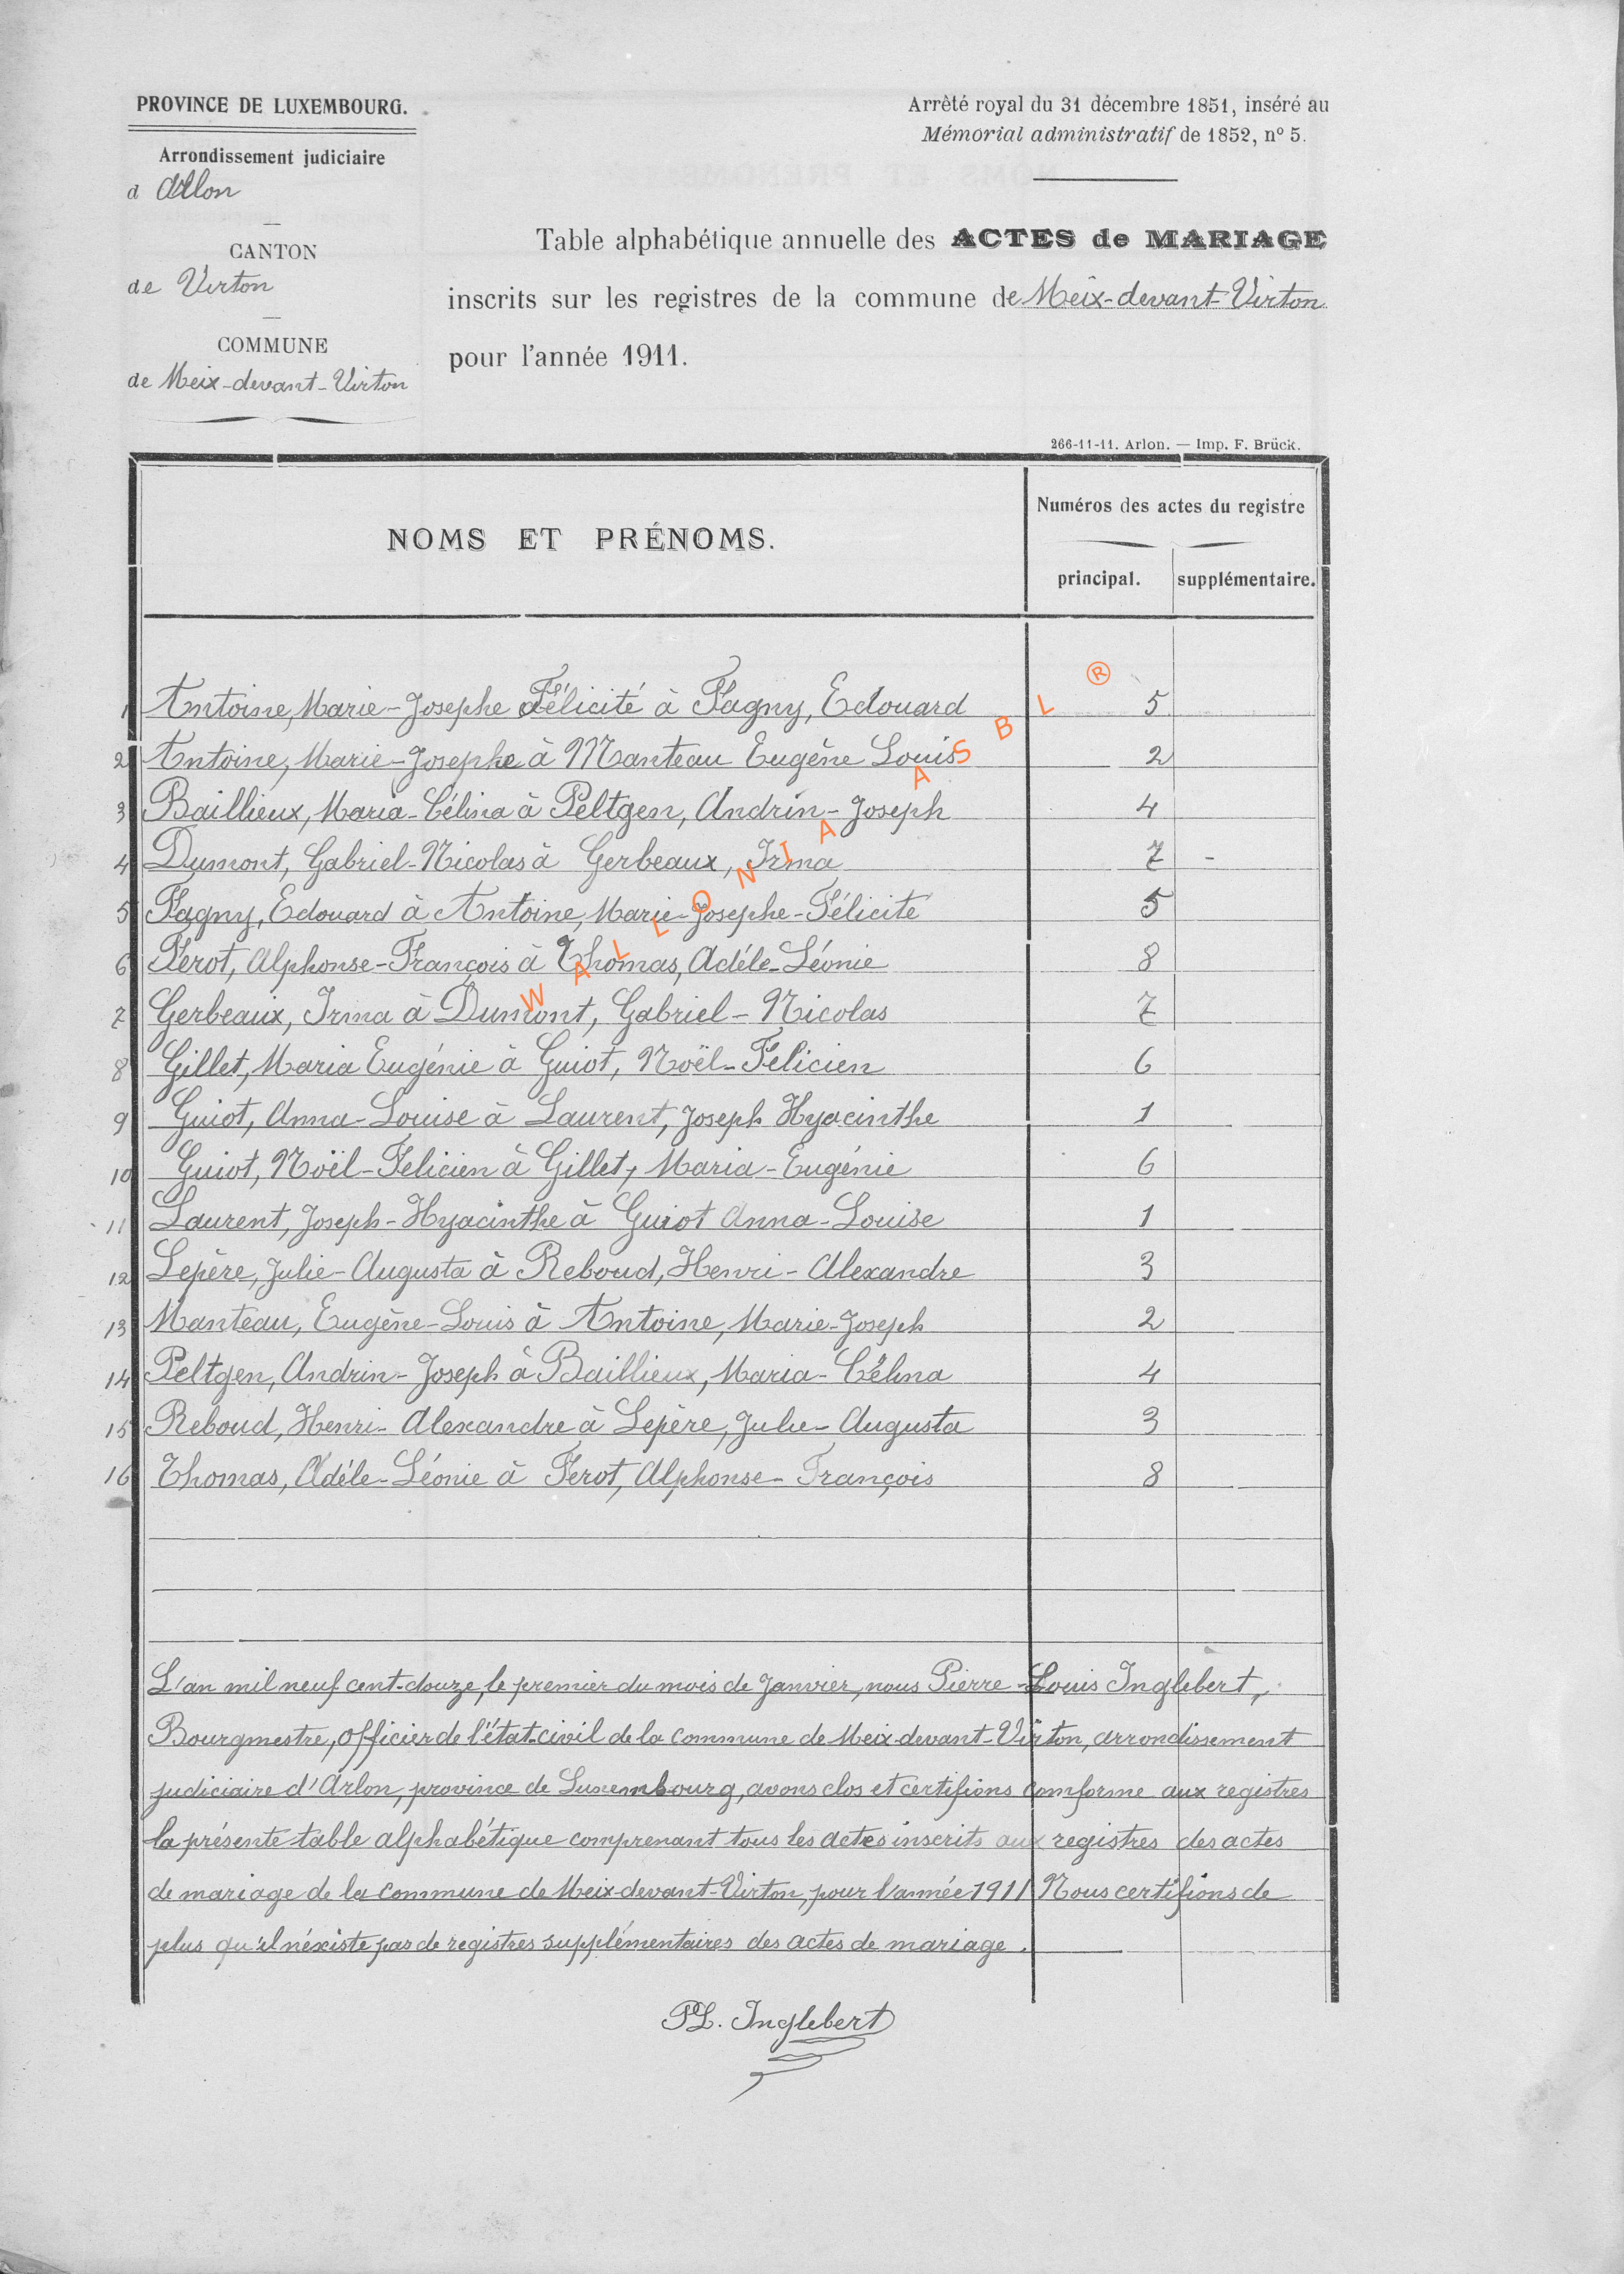 PROVINCE DE LUXEMBOURG.
Arrondissement judiciaire
d'Arlon
CANTON
de Virton
COMMUNE
de Meix-devant-Virton
Arrêté royal du 31 décembre 1851, inséré au
Mémorial administratif de 1852, nº 5.
Table alphabétique annuelle des ACTES de MARIAGE
inscrits sur les registres de la commune de Meix-devant-Virton
pour l'année 1911.
266-11-11. Arlon. — Imp. F. Brück.
NOMS ET PRÉNOMS.
Numéros des actes du registre
principal. supplémentaire.
1 Antoine, Marie-Josephe Félicité à Fagny, Edouard 5
2 Antoine, Marie-Josephe à Manteau Eugène Louis 2
3 Baillieux, Maria-Célina à Peltgen, Andrin-Joseph 4
4 Dumont, Gabriel-Nicolas à Gerbeaux, Irma 7 -
5 Fagny, Edouard à Antoine, Marie-Josephe-Félicite 5
6 Ferot, Alphonse-François à Thomas, Adéle-Léonie 8
7 Gerbeaux, Irma à Dumont, Gabriel-Nicolas 7
8 Gillet, Maria Eugénie à Guiot, Noël-Felicien 6
9 Guiot, Anna-Louise à Laurent, Joseph Hyacinthe 1
10 Guiot, Noël-Felicien à Gillet, Maria-Eugénie 6
11 Laurent, Joseph-Hyacinthe à Guiot Anna-Louise 1
12 Lepère, Julie-Augusta à Reboud, Henri-Alexandre 3
13 Manteau, Eugène-Louis à Antoine, Marie-Joseph 2
14 Peltgen, Andrin-Joseph à Baillieux, Maria-Célina 4
15 Reboud, Henri-Alexandre à Lepère, Julie-Augusta 3
16 Thomas, Adéle-Léonie à Ferot, Alphonse-François 8
WALLONIA ASBL ®
L'an mil neuf cent-douze, le premier du mois de Janvier, nous Pierre-Louis Inglebert,
Bourgmestre, officier de l'état-civil de la commune de Meix-devant-Virton, arrondissement
judiciaire d'Arlon, province de Luxembourg, avons clos et certifions comforme aux registres
la présente table alphabétique comprenant tous les actes inscrits aux registres des actes
de mariage de la commune de Meix-devant-Virton, pour l'année 1911 Nous certifions de
plus qu'il n'éxiste pas de registres supplémentaires des actes de mariage.
PL. Inglebert